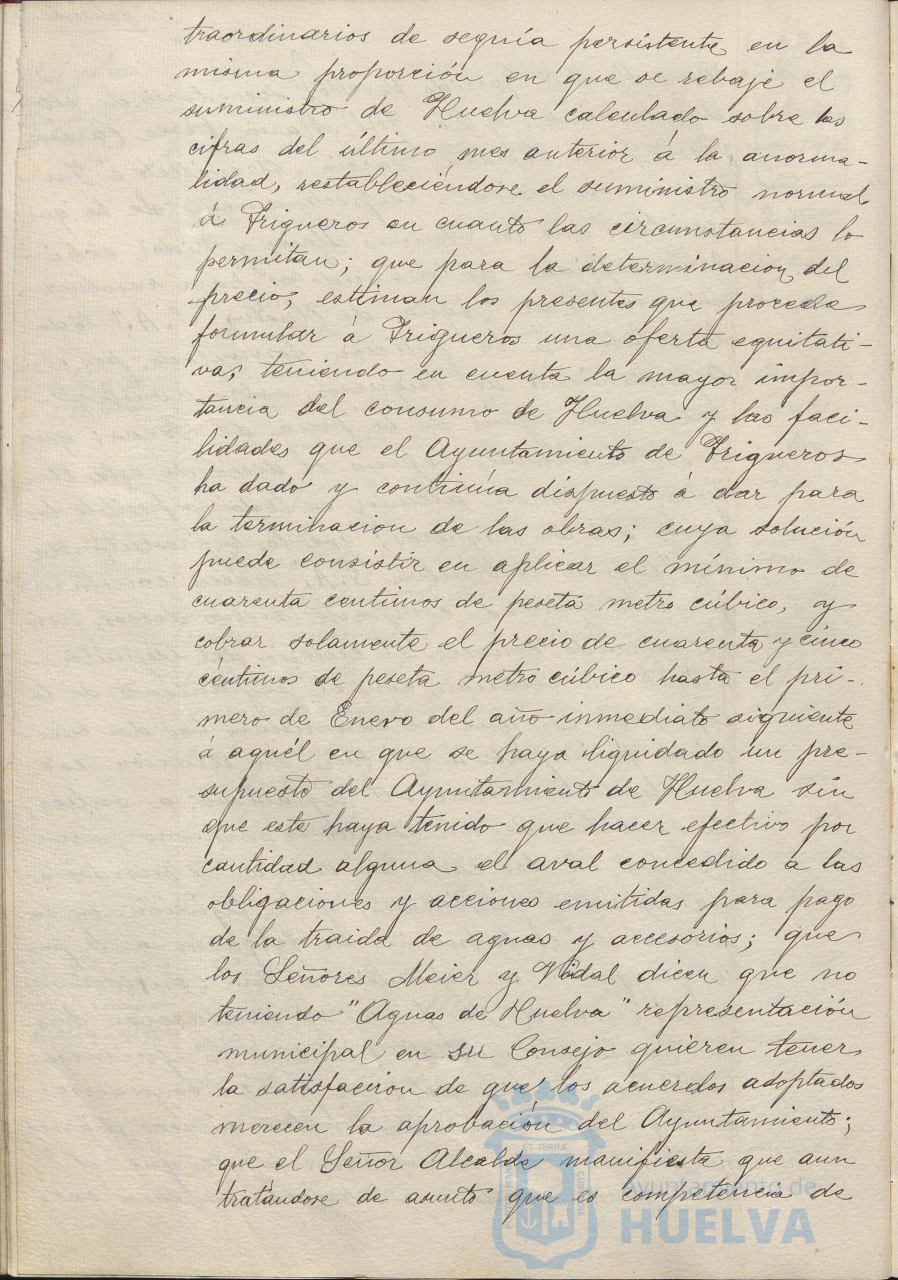 traordinarios de sequía persistente en la
misma proporción en que se rebaje el
suministro de Huelva calculado sobre las
cifras del último mes anterior á la anorma-
lidad, restableciéndose el suministro normal
á Trigueros en cuanto las circunstancias lo
permitan; que para la determinacion del
precio, estiman los presentes que proceda
formular á Trigueros una oferta equitati-
va, teniendo en cuenta la mayor impor-
tancia del consumo de Huelva y las faci-
lidades que el Ayuntamiento de Trigueros
ha dado y continúa dispuesto á dar para
la terminacion de las obras; cuya solución
puede consistir en aplicar el mínimo de
cuarenta centimos de peseta metro cúbico, y
cobrar solamente el precio de cuarenta y cinco
céntimos de peseta metro cúbico hasta el pri-
mero de Enero del año inmediato siguiente
á aquél en que se haya liquidado un pre-
supuesto del Ayuntamiento de Huelva sin
que este haya tenido que hacer efectivo por
cantidad alguna el aval concedido a las
obligaciones y acciones emitidas para pago
de la traida de aguas y accesorios; que
los Señores Meier y Vidal dicen que no
teniendo "Aguas de Huelva" representación
municipal en su Consejo quieren tener
la satisfaccion de que los acuerdos adoptados
merecen la aprobación del Ayuntamiento;
que el Señor Alcalde manifiesta que aun
tratándose de asunto que es competencia de
Ayuntamiento de
HUELVA